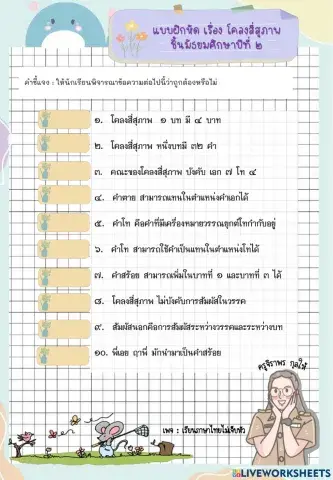 แบบฝึกหัด เรื่อง โคลงสี่สุภาพ
ชั้นมัธยมศึกษาปีที่ ๒
คำชี้แจง : ให้นักเรียนพิจารณาข้อความต่อไปนี้ว่าถูกต้องหรือไม่
๑. โคลงสี่สุภาพ ๑ บท มี ๔ บาท
๒. โคลงสี่สุภาพ หนึ่งบทมี ๓๒ คำ
๓. คณะของโคลงสี่สุภาพ บังคับ เอก ๗ โท ๔
๔. คำตาย สามารถแทนในตำแหน่งคำเอกได้
๕. คำโท คือคำที่มีเครื่องหมายวรรณยุกต์โทกำกับอยู่
๖. คำโท สามารถใช้คำเป็นแทนในตำแหน่งโทได้
๗. คำสร้อย สามารถเพิ่มในบาทที่ ๑ และบาทที่ ๓ ได้
๘. โคลงสี่สุภาพ ไม่บังคับการสัมผัสในวรรค
๙. สัมผัสนอกคือการสัมผัสระหว่างวรรคและระหว่างบท
๑๐. พี่เอย ฤาพี่ มักนำมาเป็นคำสร้อย
ครูจิราพร กุลให้
เพจ : เรียนภาษาไทยไม่จับหัว
LIVEWORKSHEETS